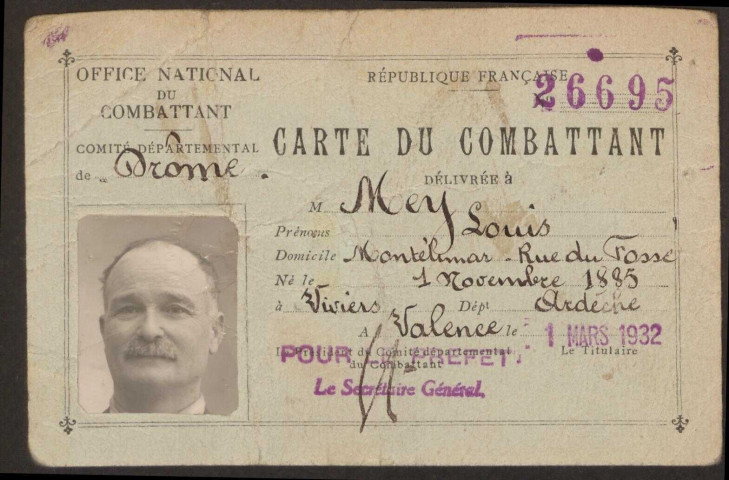 OFFICE NATIONAL
DU
COMBATTANT
COMITÉ DÉPARTEMENTAL
de Drôme.
RÉPUBLIQUE FRANÇAISE
26695
CARTE DU COMBATTANT
DÉLIVRÉE à
M Mey
Prénoms Louis
Domicile Montélimar - Rue du Fossé
Né le 1 Novembre 1885
à Viviers Dépt Ardèche
A Valence le 1 MARS 1932
Le Président du Comité départemental
du Combattant
Le Titulaire
POUR LE PRÉFET
Le Secrétaire Général,